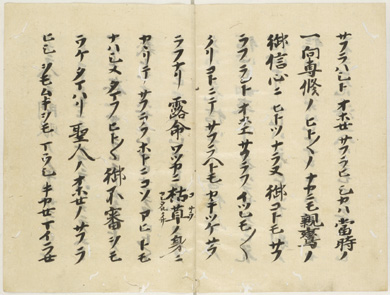 サフラハント オホセサフラヒシカハ當時ノ
一向専修ノヒト〱ノナカニモ親鸞ノ
御信心ニヒトツナラヌ御コトモサフ
ラフラントオホエサフラフイツレモ〱
クリコトニテサフラヘトモカキツケサフ
ラフナリ露命ワツカニ枯草ノ身ニ
カヽリテサフラフホトニコソアヒトモ
ナハシメタマフヒト〱御不審ヲモ
ウケタマハリ聖人ノオホセノサフラ
ヒシオモムキヲモマフシキカセマイラセ